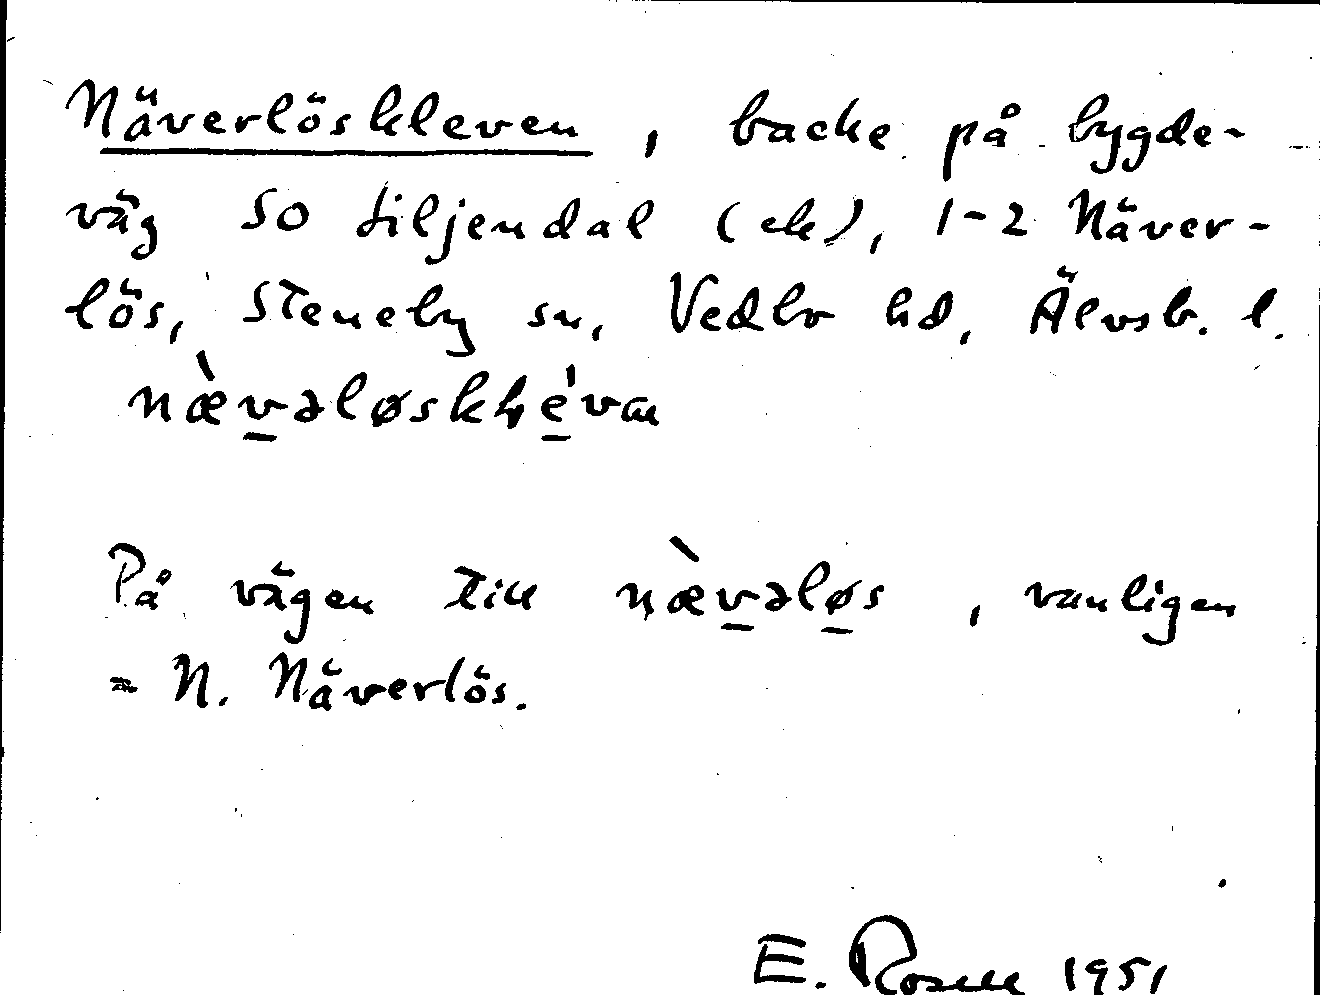 Näverlöskleven, backe på bygde-
väg SO Liljendal (ek), 1-2 Näver-
lös, Steneby sn, Vedbo hd, Älvsb. l.
På vägen till nævəløs, vanligen
= N. Näverlös.
E. Rosell 1951